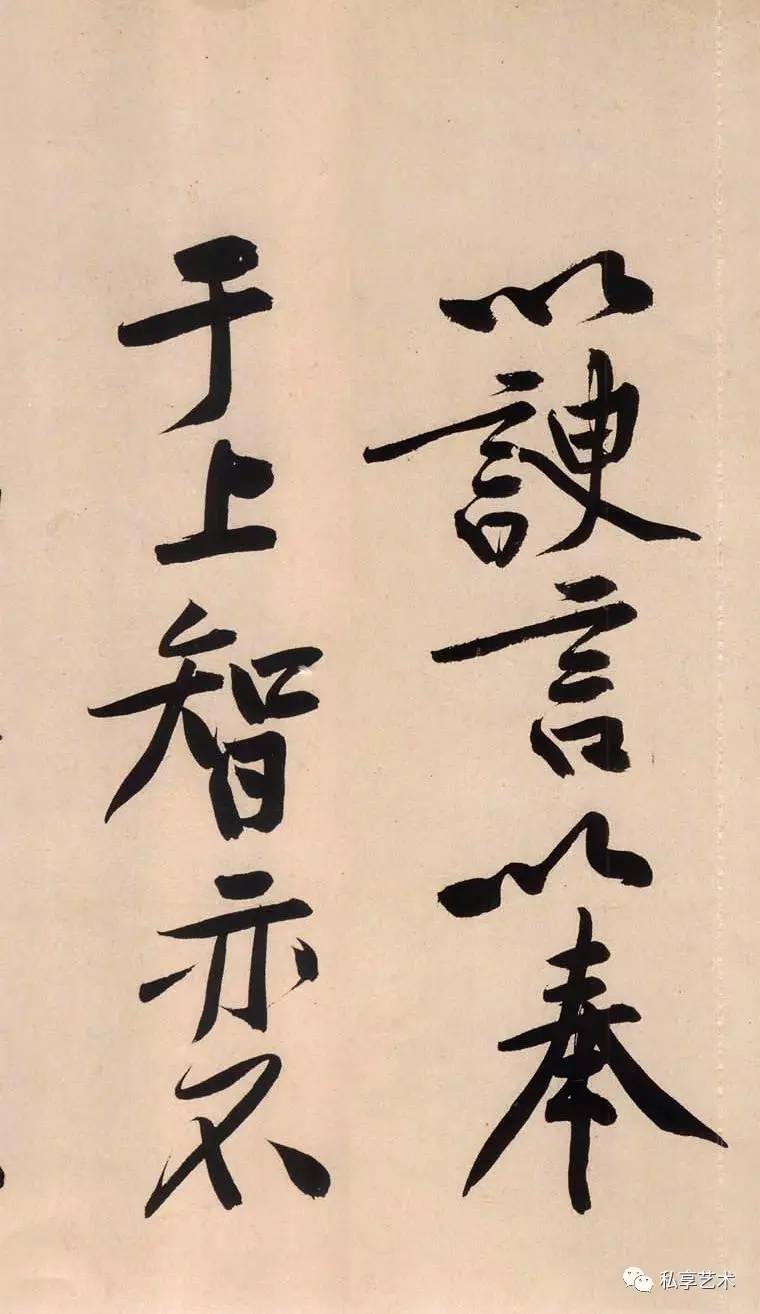 以諛言以奉
于上智亦不
私享艺术